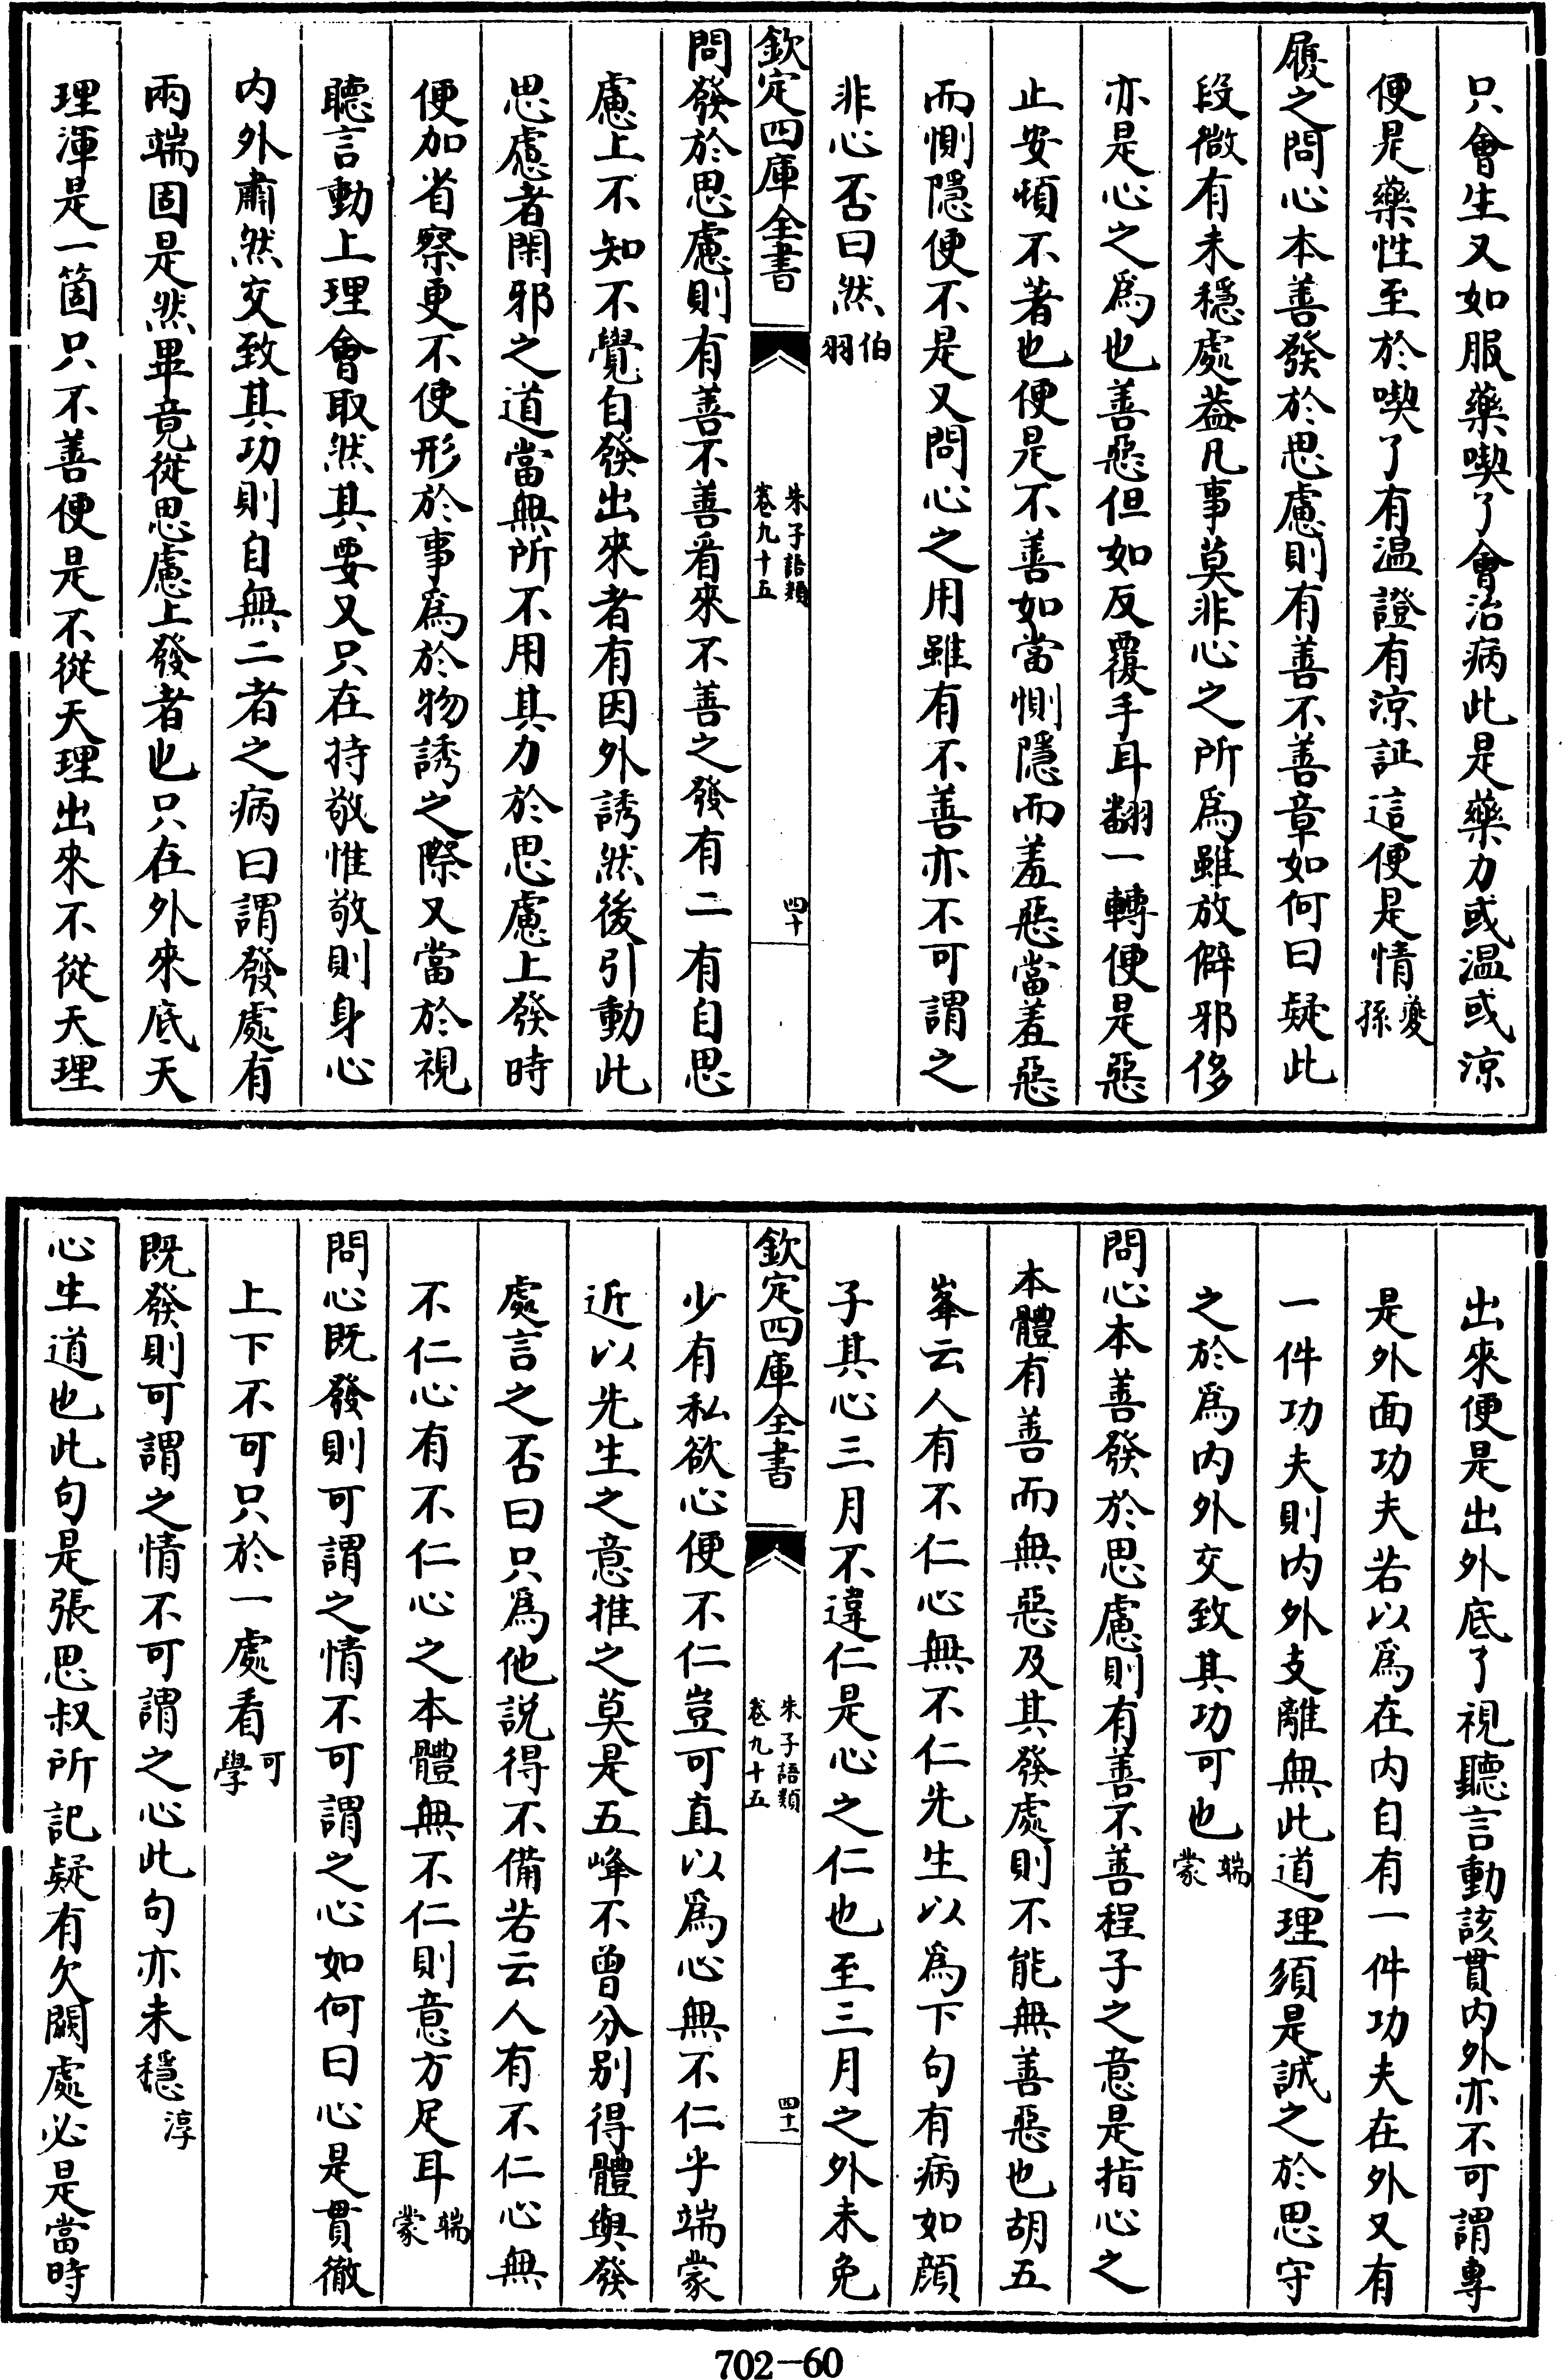 只會生又如服藥喫了會治病此是藥力或温或涼
便是藥性至於喫了有温證有涼証這便是情夔孫
履之問心本善發於思慮則有善不善章如何曰疑此
段微有未穩處蓋凡事莫非心之所為雖放僻邪侈
亦是心之為也善惡但如反覆手耳翻一轉便是惡
止安頓不著也便是不善如當惻隱而羞惡當羞惡
而惻隱便不是又問心之用雖有不善亦不可謂之
非心否曰然伯羽
欽定四庫全書
朱子語類
卷九十五
四十
問發於思慮則有善不善看來不善之發有二有自思
慮上不知不覺自發出來者有因外誘然後引動此
思慮者閑邪之道當無所不用其力於思慮上發時
便加省察更不使形於事為於物誘之際又當於視
聽言動上理會取然其要又只在持敬惟敬則身心
内外肅然交致其功則自無二者之病曰謂發處有
兩端固是然畢竟從思慮上發者也只在外來底天
理渾是一箇只不善便是不從天理出來不從天理
出來便是出外底了視聽言動該貫内外亦不可謂專
是外面功夫若以為在内自有一件功夫在外又有
一件功夫則内外支離無此道理須是誠之於思守
之於為内外交致其功可也端蒙
問心本善發於思慮則有善不善程子之意是指心之
本體有善而無惡及其發處則不能無善惡也胡五
峯云人有不仁心無不仁先生以為下句有病如顔
子其心三月不違仁是心之仁也至三月之外未免
欽定四庫全書
朱子語類
卷九十五
四十一
少有私欲心便不仁豈可直以為心無不仁乎端蒙
近以先生之意推之莫是五峰不曾分别得體與發
處言之否曰只為他說得不備若云人有不仁心無
不仁心有不仁心之本體無不仁則意方足耳端蒙
問心既發則可謂之情不可謂之心如何曰心是貫徹
上下不可只於一處看可學
既發則可謂之情不可謂之心此句亦未穩淳
心生道也此句是張思叔所記疑有欠闕處必是當時
702-60